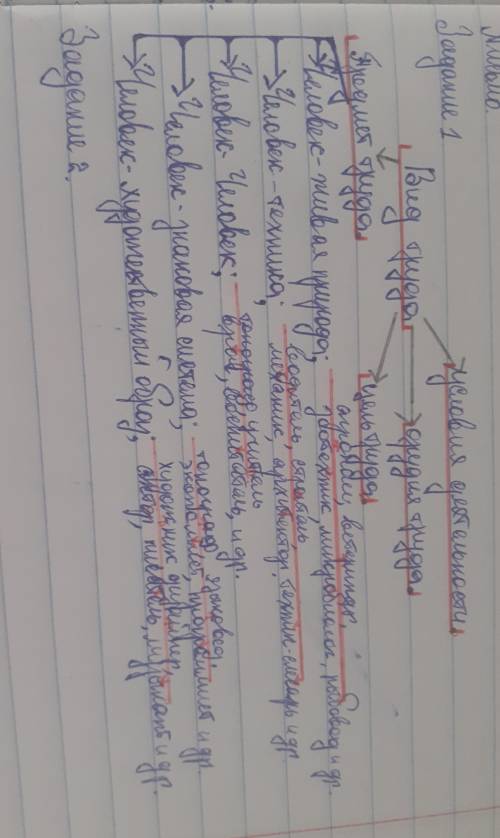 Задание 1
Вид труда
условия деятельности
Предмет труда
цель труда
орудия труда
Человек-живая природа;
агроном, ветеринар,
зоотехник, микробиолог, рыбовод и др.
Человек-техника;
водитель, строитель,
механик, архитектор, техник-слесарь и др
Человек-Человек;
учитель
врач, воспитатель, и др.
Человек-знаковая система;
топограф, языковед,
экономист, программист и др.
Человек-художественный образ;
художник, дизайнер,
актёр, писатель, музыкант и др.
Задание 2.